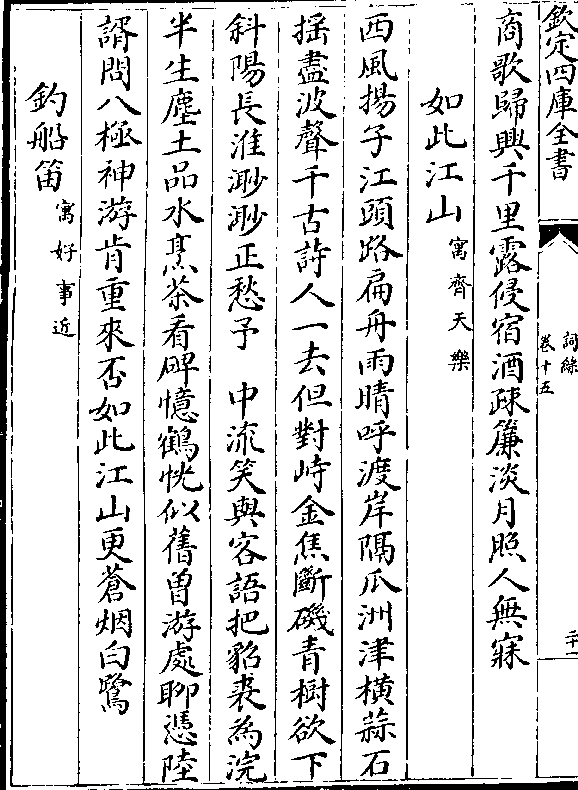 欽定四庫全書
詞綜
卷十五
二十一
商歌歸興千里露侵宿酒疎簾淡月照人無寐
如此江山寓齊天樂
西風揚子江頭路扁舟雨晴呼渡岸隔瓜洲津橫蒜石
揺盡波聲千古詩人一去但對峙金焦斷磯青樹欲下
斜陽長淮渺渺正愁予　中流笑與客語把貂裘為浣
半生塵土品水烹茶看碑憶鶴恍似舊曽游處聊憑陸
諝問八極神游肯重來否如此江山更蒼烟白鷺
釣船笛寓好事近